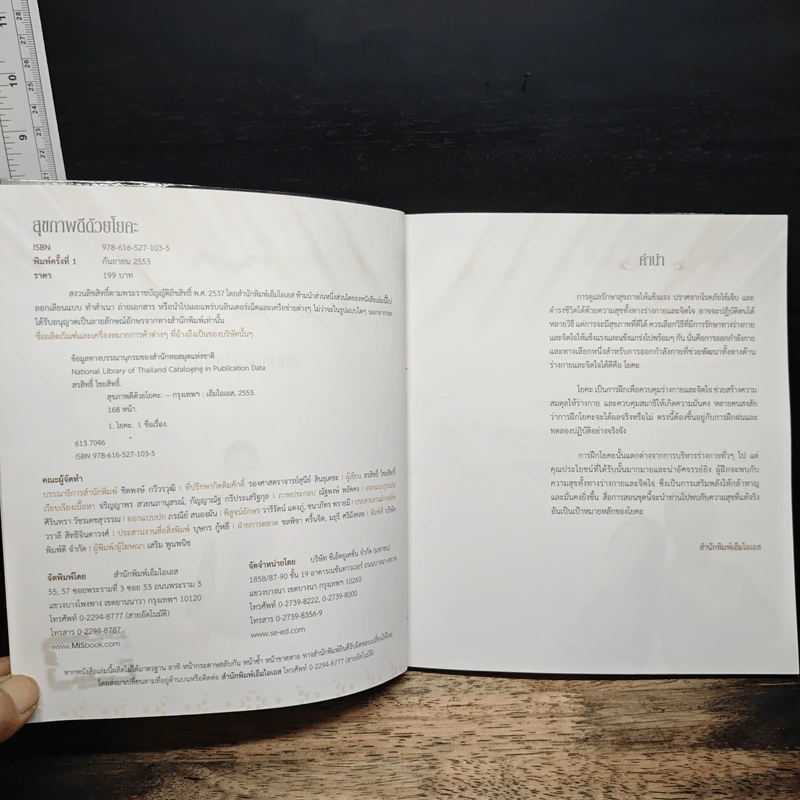 สุขภาพดีด้วยโยคะ
ISBN 978-616-527-103-5
พิมพ์ครั้งที่ 1 กันยายน 2553
ราคา 199 บาท
สงวนลิขสิทธิ์ตามพระราชบัญญัติลิขสิทธิ์ พ.ศ. 2537 โดยสำนักพิมพ์เอ็มไอเอส ห้ามนำส่วนหนึ่งส่วนใดของหนังสือเล่มนี้ไป
ลอกเลียนแบบ ทำสำเนา ถ่ายเอกสาร หรือนำไปเผยแพร่บนอินเตอร์เน็ตและเครือข่ายต่างๆ ไม่ว่าจะในรูปแบบใดๆ นอกจากจะ
ได้รับอนุญาตเป็นลายลักษณ์อักษรจากทางสำนักพิมพ์เท่านั้น
ชื่อผลิตภัณฑ์และเครื่องหมายการค้าต่างๆ ที่อ้างถึงเป็นของบริษัทนั้นๆ
ข้อมูลทางบรรณานุกรมของสำนักหอสมุดแห่งชาติ
National Library of Thailand Cataloging in Publication Data
สรสิทธิ์ ไชยสิทธิ์.
สุขภาพดีด้วยโยคะ. -- กรุงเทพฯ : เอ็มไอเอส, 2553.
168 หน้า.
1. โยคะ. I. ชื่อเรื่อง.
613.7046
ISBN 978-616-527-103-5
คณะผู้จัดทำ
บรรณาธิการสำนักพิมพ์ ชิตพงษ์ กวีวรวุฒิ | ที่ปรึกษากิตติมศักดิ์ รองศาสตราจารย์สุนีย์ สินธุเดชะ | ผู้เขียน สรสิทธิ์ ไชยสิทธิ์
เรียบเรียงเนื้อหา จริญญาพร สวยนภานุสรณ์, กัญญาณัฐ กรีประเสริฐกุล | ภาพประกอบ ณัฐพงษ์ พยัคคง | ออกแบบรูปเล่ม
ศิรินทรา วัชรเดชสุวรรณ | ออกแบบปก ภรณีย์ สนองผัน | พิสูจน์อักษร วารีรัตน์ แตงภู่, ชนาภัทร พรายมี | ประสานงานฝ่ายผลิต
วราลี สิทธิจินดาวงศ์ | ประสานงานสื่อสิ่งพิมพ์ บุษกร กู้หลี | ฝ่ายการตลาด ชลพิชา ครื้นจิต, มยุรี ศรีมังคละ | พิมพ์ที่ บริษัท
พิมพ์ดี จำกัด | ผู้พิมพ์/ผู้โฆษณา เสริม พูนพนิช
จัดพิมพ์โดย สำนักพิมพ์เอ็มไอเอส
55, 57 ซอยพระรามที่ 3 ซอย 53 ถนนพระราม 3
แขวงบางโพงพาง เขตยานนาวา กรุงเทพฯ 10120
โทรศัพท์ 0-2294-8777 (สายอัตโนมัติ)
โทรสาร 0-2294-8787
www.MISbook.com
จัดจำหน่ายโดย บริษัท ซีเอ็ดยูเคชั่น จำกัด (มหาชน)
1858/87-90 ชั้น 19 อาคารเนชั่นทาวเวอร์ ถนนบางนา-ตราด
แขวงบางนา เขตบางนา กรุงเทพฯ 10260
โทรศัพท์ 0-2739-8222, 0-2739-8000
โทรสาร 0-2739-8356-9
www.se-ed.com
หากหนังสือเล่มนี้ผลิตไม่ได้มาตรฐาน อาทิ หน้ากระดาษสลับกัน หน้าซ้ำ หน้าขาดหาย ทางสำนักพิมพ์ยินดีรับผิดชอบเปลี่ยนให้ใหม่
โดยส่งมาเปลี่ยนตามที่อยู่ด้านบนหรือติดต่อ สำนักพิมพ์เอ็มไอเอส โทรศัพท์ 0-2294-8777 (สายอัตโนมัติ)
คำนำ
การดูแลรักษาสุขภาพให้แข็งแรง ปราศจากโรคภัยไข้เจ็บ และ
ดำรงชีวิตได้ด้วยความสุขทั้งทางร่างกายและจิตใจ อาจจะปฏิบัติตนได้
หลายวิธี แต่การจะมีสุขภาพที่ดีได้ ควรเลือกวิธีที่มีการรักษาทางร่างกาย
และจิตใจให้แข็งแรงและแข็งแกร่งไปพร้อมๆ กัน นั่นคือการออกกำลังกาย
และทางเลือกหนึ่งสำหรับการออกกำลังกายที่ช่วยพัฒนาทั้งทางด้าน
ร่างกายและจิตใจได้ดีคือ โยคะ
โยคะ เป็นการฝึกเพื่อควบคุมร่างกายและจิตใจ ช่วยสร้างความ
สมดุลให้ร่างกาย และควบคุมสมาธิให้เกิดความมั่นคง หลายคนสงสัย
ว่าการฝึกโยคะจะได้ผลจริงหรือไม่ ตรงนี้ต้องขึ้นอยู่กับการฝึกฝนและ
ทดลองปฏิบัติอย่างจริงจัง
การฝึกโยคะนั้นแตกต่างจากการบริหารร่างกายทั่วๆ ไป แต่
คุณประโยชน์ที่ได้รับนั้นมากมายและน่าอัศจรรย์ยิ่ง ผู้ฝึกจะพบกับ
ความสุขทั้งทางร่างกายและจิตใจ ซึ่งเป็นการเสริมพลังให้กล้าหาญ
และมั่นคงยิ่งขึ้น สื่อการสอนชุดนี้จะนำท่านไปพบกับความสุขที่แท้จริง
อันเป็นเป้าหมายหลักของโยคะ
สำนักพิมพ์เอ็มไอเอส